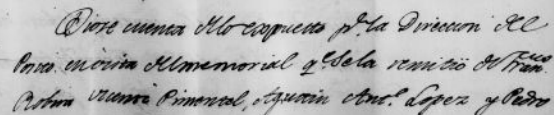 Diose cuenta de lo expuesto pr. la Direccion del
en vista del memorial qe. se la remitió de Franco
Vicente Pimentel, Agustin Anto. Lopez y Pedro